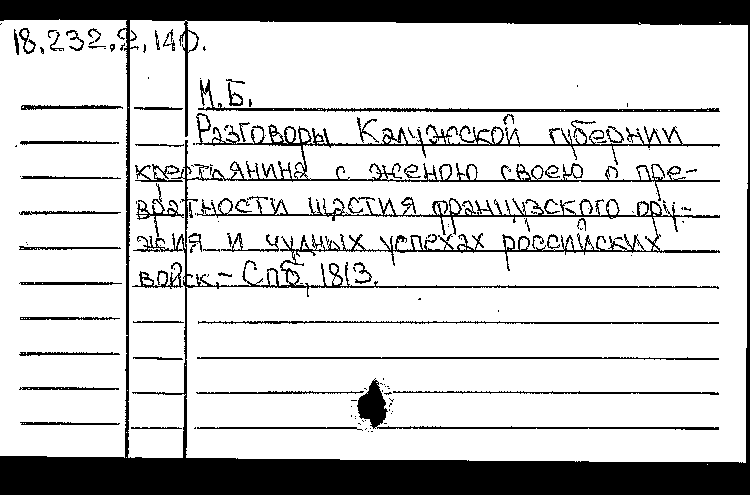 18.232.2.140.
М.Б.
Разговоры Калужской губернии
крестьянина с женою своею о пре-
вратности щастия французского ору-
жия и чудных успехах российских
войск.- Спб, 1813.